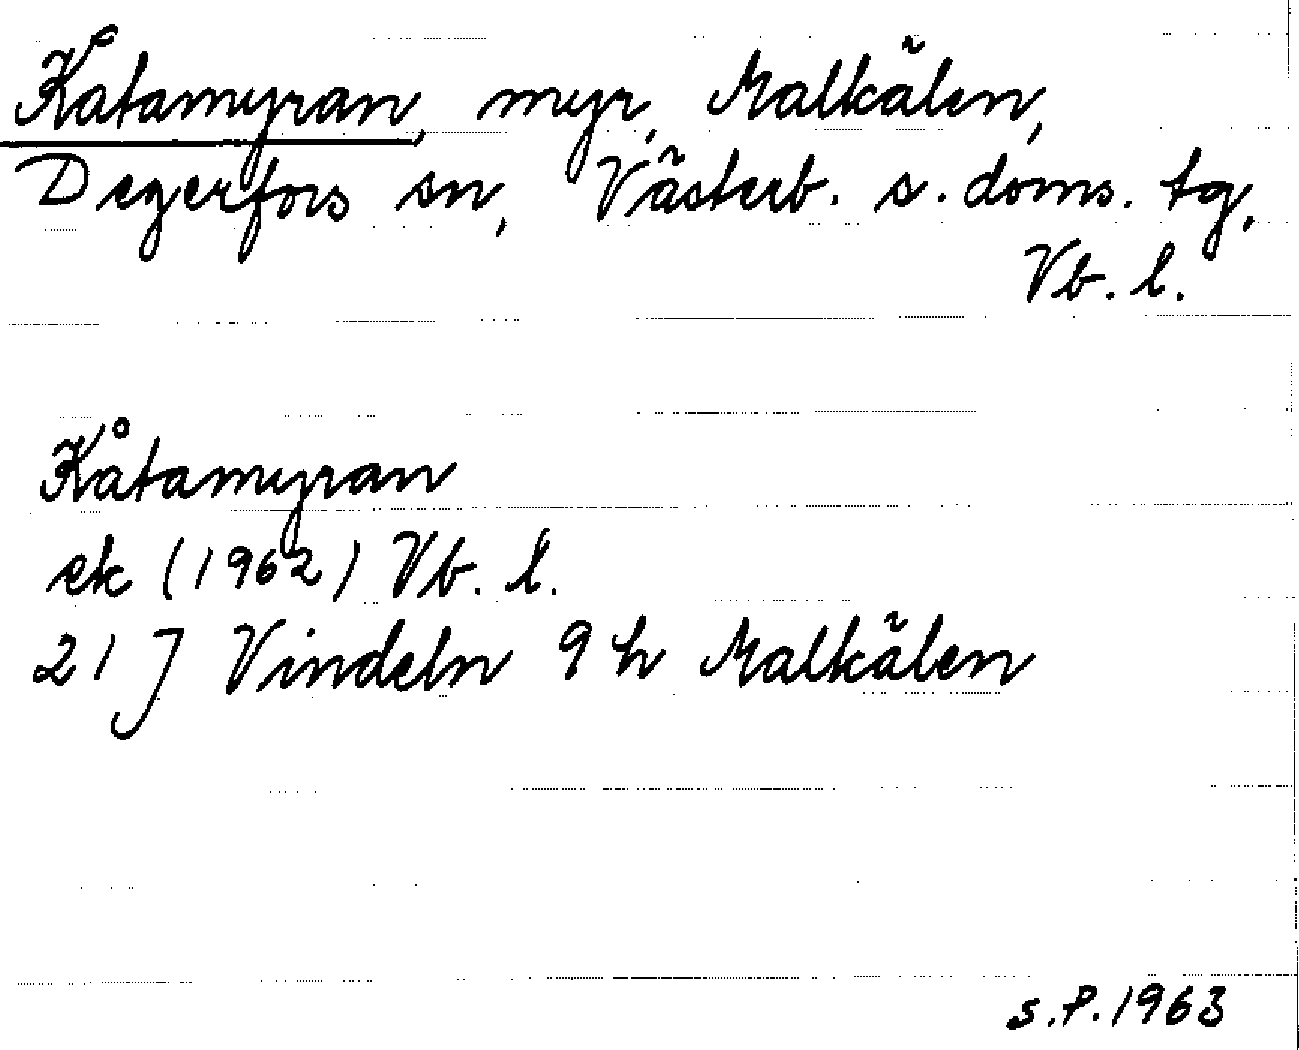 Kåtamyran, myr, Malkälen,
Degerfors sn, Västerb. s. doms. tg,
Vb. l.
Kåtamyran
ek (1962) Vb. l.
21 J Vindeln 9 h Malkälen
s.P.1963